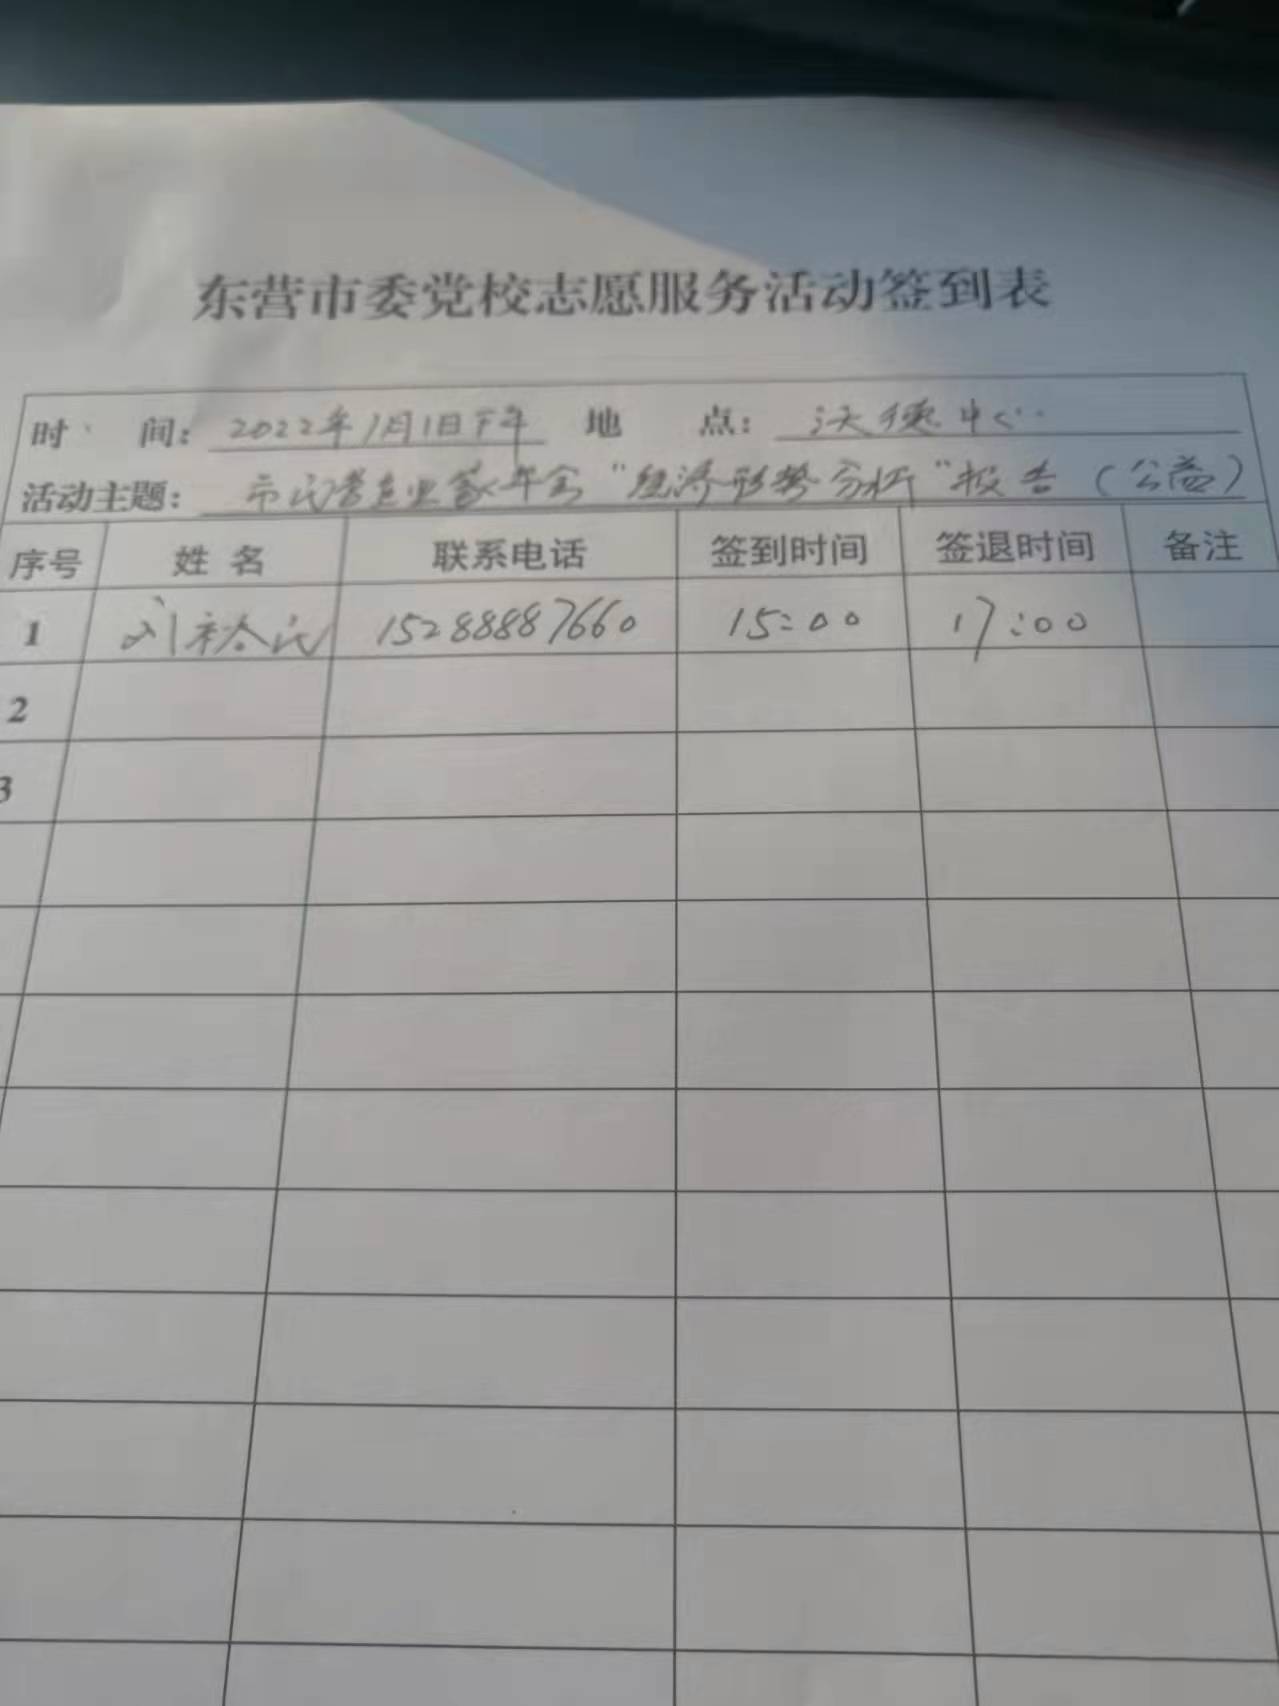 东营市委党校志愿服务活动签到表
时 间: 2022年1月1日下午 地 点: 沃德中心
活动主题: 市民营企业家年会“经济形势分析”报告(公益)
序号 姓名 联系电话 签到时间 签退时间 备注
1 刘裕民 15288887660 15:00 17:00
2
3